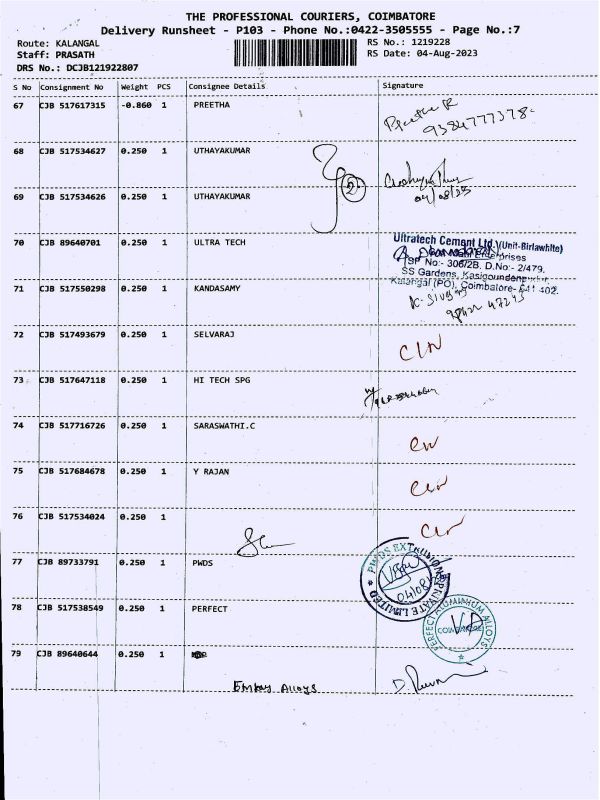 THE PROFESSIONAL COURIERS, COIMBATORE
Delivery Runsheet - P103 - Phone No.:0422-3505555 - Page No.:7
Route: KALANGAL RS No.: 1219228
Staff: PRASATH RS Date: 04-Aug-2023
DRS No.: DCJB121922807
S No Consignment No Weight PCS Consignee Details Signature
67 CJB 517617315 -0.860 1 PREETHA
Preetha R
9384777378
68 CJB 517534627 0.250 1 UTHAYAKUMAR
2
04/08/23
69 CJB 517534626 0.250 1 UTHAYAKUMAR
70 CJB 89640701 0.250 1 ULTRA TECH
Ultratech Cement Ltd.,(Unit-Birlawhite)
Enterprises
SP No:- 306/2B, D.No:- 2/479,
SS Gardens, Kasigoundenpudur,
Kalangal (PO), Coimbatore- 641 402.
71 CJB 517550298 0.250 1 KANDASAMY
72 CJB 517493679 0.250 1 SELVARAJ
73 CJB 517647118 0.250 1 HI TECH SPG
74 CJB 517716726 0.250 1 SARASWATHI.C
75 CJB 517684678 0.250 1 Y RAJAN
76 CJB 517534024 0.250 1
77 CJB 89733791 0.250 1 PWDS
PWDS EXTRUSIONS PRIVATE LIMITED
78 CJB 517538549 0.250 1 PERFECT
PERFECT ALUMINIUM ALLOYS
COIMBATORE
79 CJB 89640644 0.250 1
Alloys